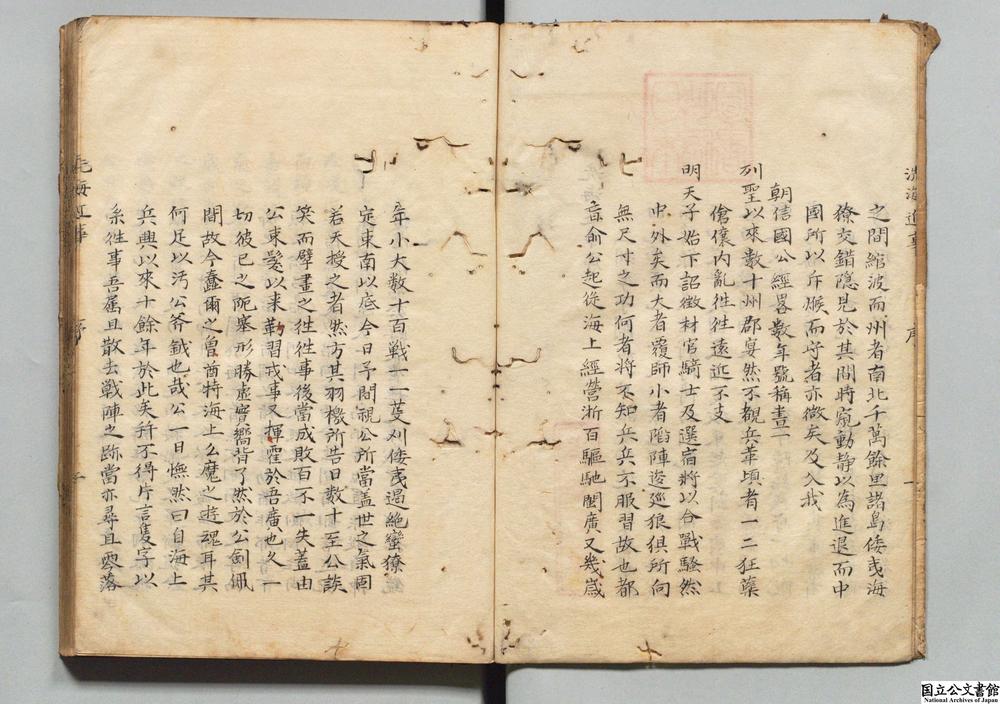 之間縮波而州者南北千萬餘里諸島倭夷海
獠交錯隱見於其間時窺動静以為進退而中
國所以斥堠而守者亦微矣及入我
朝信國公經畧数年號稱畫一
列聖以來数十州郡宴然不覩兵革頃者一二狂孽
傖儴内亂徃徃遠近不支
明天子始下詔徵材官騎士及選宿將以合戰騷然
中外矣而大者覆師小者陷陣逡廵狼俱所向
無尺寸之功何者將不知兵兵不服習故也都
督俞公起從海上經營浙百驅馳閩廣又幾歲
年小大数十百戦一一芟刈倭夷遏絶蠻獠
定東南以底今日予間視公所當盖世之氣固
若天授之者然方其羽檄所告日数十至公談
笑而擘畫之徃徃事後當成敗百不一失蓋由
公束髪以来勒習戎事又揮霍於吾廣也久一
切彼已之阨塞形勝虚實嚮背了然於公劍佩
間故今蠢爾之魯酋特海上么魔之遊魂耳其
何足以汚公斧鉞也哉公一日憮然曰自海上
兵興以來十餘年於此矣所不得片言隻字以
系徃事吾属且散去戦陣之跡當亦尋且零落
洗海近事 序 一
國立公文書館
National Archives of Japan